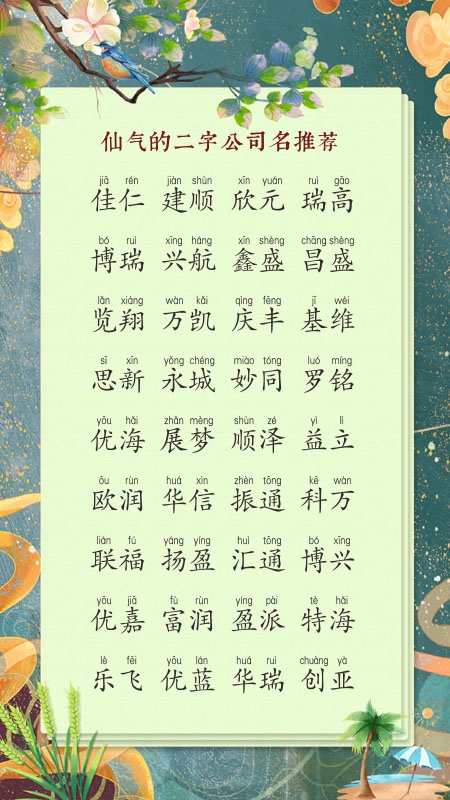 仙气的二字公司名推荐
jiā rén jiàn shùn xīn yuán ruì gāo
佳仁 建顺 欣元 瑞高
bó ruì xīng háng xīn shèng chāng shèng
博瑞 兴航 鑫盛 昌盛
lǎn xiáng wàn kǎi qìng fēng jī wéi
览翔 万凯 庆丰 基维
sī xīn yǒng chéng miào tóng luó míng
思新 永城 妙同 罗铭
yōu hǎi zhǎn mèng shùn zé yì lì
优海 展梦 顺泽 益立
ōu rùn huá xìn zhèn tōng kē wàn
欧润 华信 振通 科万
lián fú yáng yíng huì tōng bó xīng
联福 扬盈 汇通 博兴
yōu jiā fù rùn yíng pài tè hǎi
优嘉 富润 盈派 特海
lè fēi yōu lán huá ruì chuàng yà
乐飞 优蓝 华瑞 创亚